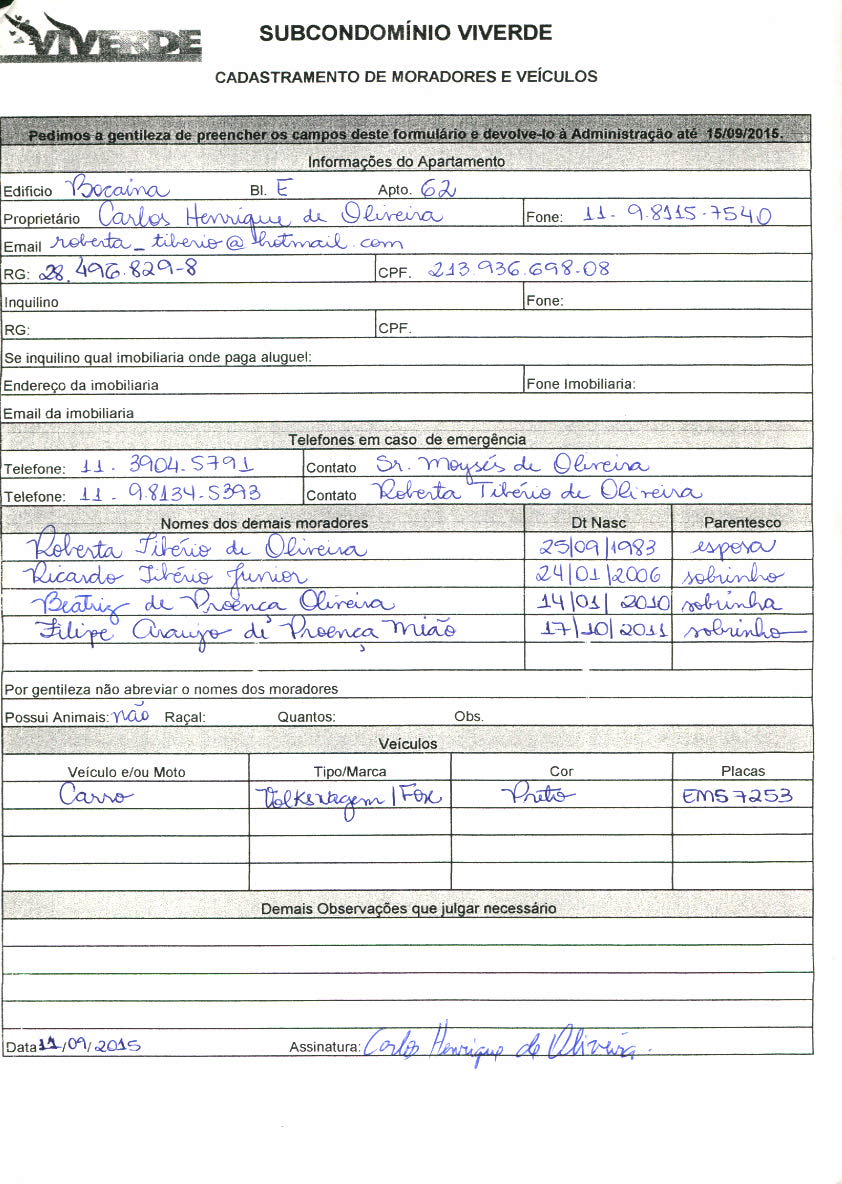 VIVERDE
SUBCONDOMÍNIO VIVERDE
CADASTRAMENTO DE MORADORES E VEÍCULOS
Pedimos a gentileza de preencher os campos deste formulário e devolve-lo à Administração até 15/09/2015.
Informações do Apartamento
Edificio Bocaina Bl. E Apto. 62
Proprietário Carlos Henrique de Oliveira Fone: 11-9.8115-7540
Email roberta_tiberio@hotmail.com
RG: 28.496.829-8 CPF. 213.936.698-08
Inquilino Fone:
RG: CPF.
Se inquilino qual imobiliaria onde paga aluguel:
Endereço da imobiliaria Fone Imobiliaria:
Email da imobiliaria
Telefones em caso de emergência
Telefone: 11-3904-5791 Contato Sr. Moysés de Oliveira
Telefone: 11-9.8134-5393 Contato Roberta Tibério de Oliveira
Nomes dos demais moradores Dt Nasc Parentesco
Roberta Tibério de Oliveira 25/09/1983 esposa
Ricardo Tibério Junior 24/01/2006 sobrinho
Beatriz de Proença Oliveira 14/01/2010 sobrinha
Filipe Araujo de Proença Mião 17/10/2011 sobrinho
Por gentileza não abreviar o nomes dos moradores
Possui Animais: não Raçal: Quantos: Obs.
Veículos
Veículo e/ou Moto Tipo/Marca Cor Placas
Carro Volksvagem/Fox Preto EMS7253
Demais Observações que julgar necessário
Data 11/09/2015 Assinatura: Carlos Henrique de Oliveira.